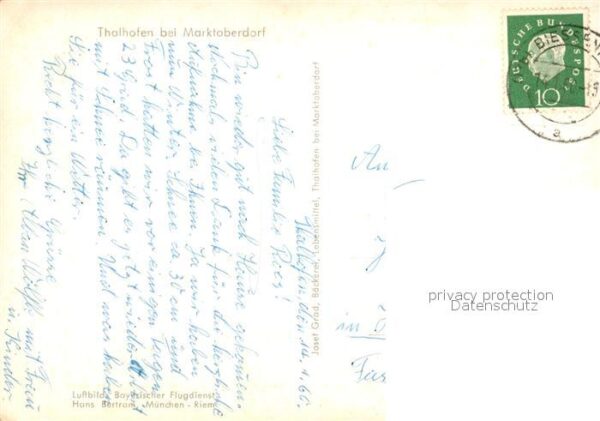 Thalhofen bei Marktoberdorf
Thalhofen den 14.1.60.
Liebe Familie
Bin wieder gut nach Hause gekommen.
Nochmals vielen Dank für die herzliche
Aufnahme bei Ihnen. Ja wir haben
nun Winter, Schnee ca 30 cm und
Frost hatten wir vor einigen Tagen
23 Grad. Da gibt es jetzt wieder Arbeit
mit Schnee räumen. Und was haben
Sie für ein Wetter.
Recht herzliche Grüsse
Ihr und Frau
u. Kinder
Josef Grad, Bäckerei, Lebensmittel, Thalhofen bei Marktoberdorf
Luftbild: Bayerischer Flugdienst
Hans Bertram, München - Riem
An
in
DEUTSCHE BUNDESPOST
10
a
privacy protection
Datenschutz